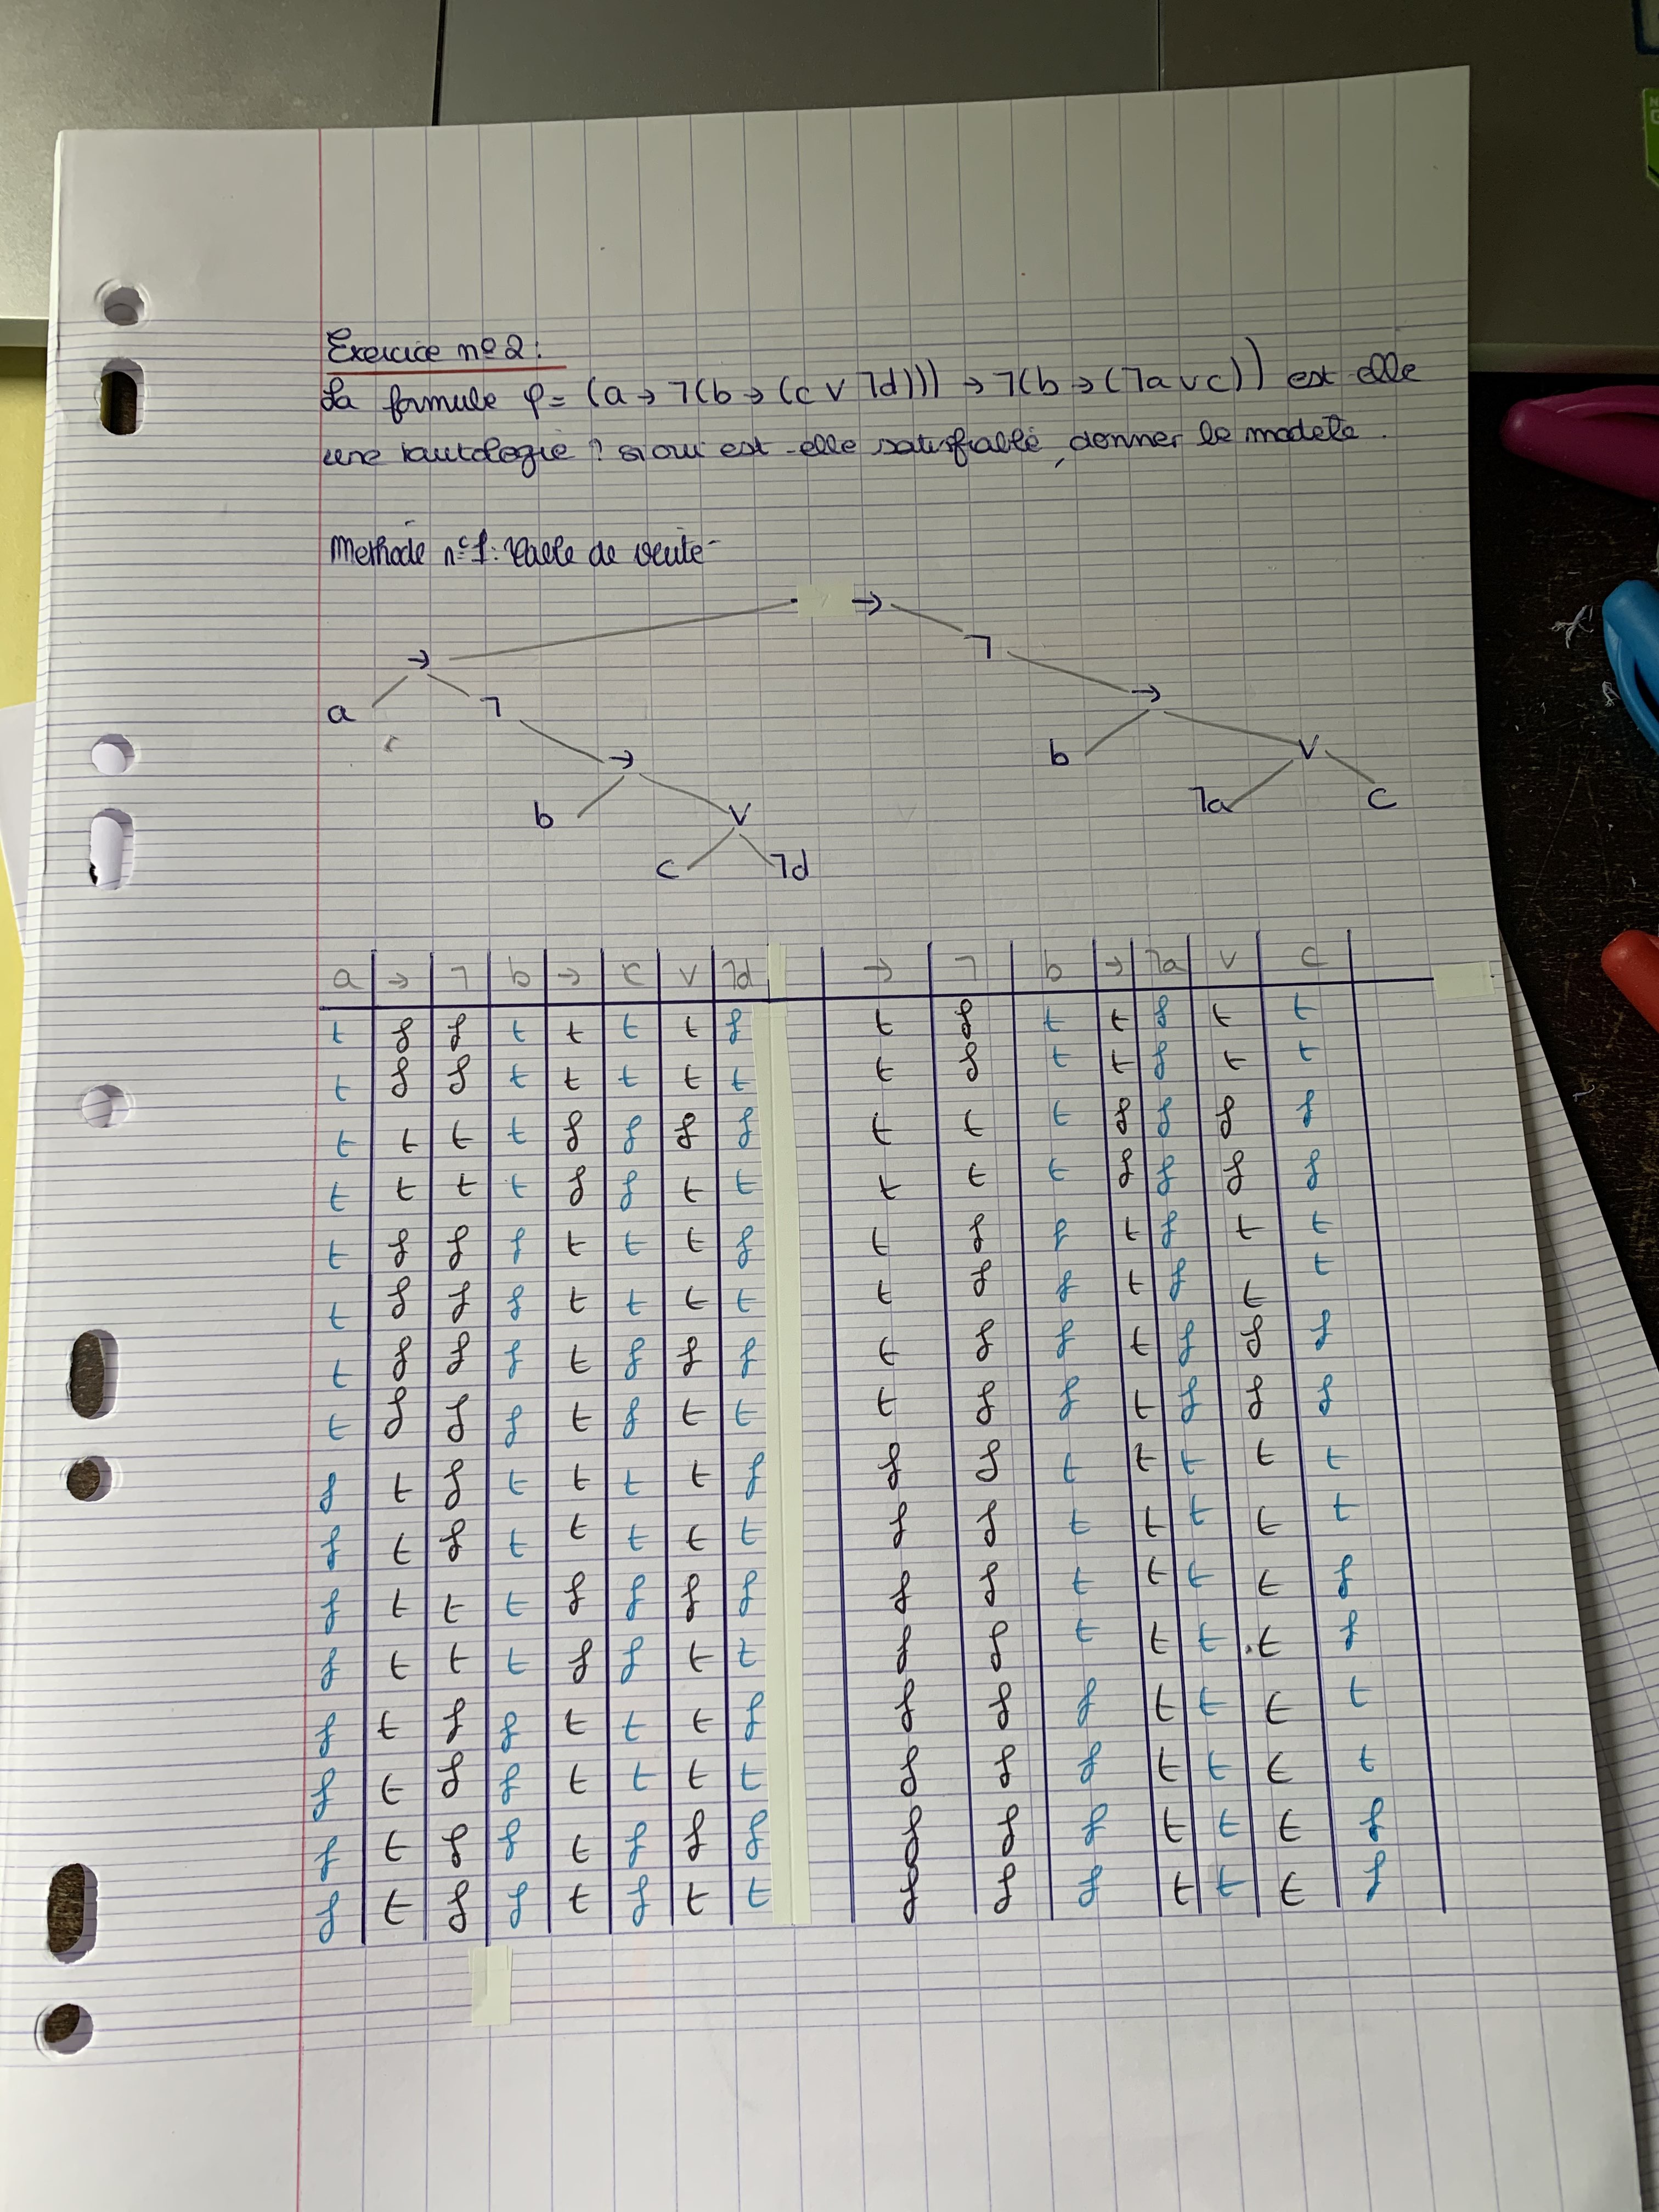 Exercice nº 2:
La formule φ = (a → ¬(b → (c ∨ ¬d))) → ¬(b → (¬a ∨ c)) est elle
une tautologie ? si oui est-elle satisfiable, donner le modele.
Methode nº1: Table de verite
→
→ ¬
a ¬ →
→ b ∨
b ∨ ¬a c
c ¬d
a | → | ¬ | b | → | c | ∨ | ¬d | → | ¬ | b | → | ¬a | ∨ | c
t f f t t t t f t f t t f t t
t f f t t t t t t f t t f t t
t t t t f f f f t t t f f f f
t t t t f f t t t t t f f f f
t f f f t t t f t f f t f t t
t f f f t t t t t f f t f t t
t f f f t f f f t f f t f f f
t f f f t f t t t f f t f f f
f t f t t t t f f f t t t t t
f t f t t t t t f f t t t t t
f t t t f f f f f f t t t t f
f t t t f f t t f f t t t t f
f t f f t t t f f f f t t t t
f t f f t t t t f f f t t t t
f t f f t f f f f f f t t t f
f t f f t f t t f f f t t t f